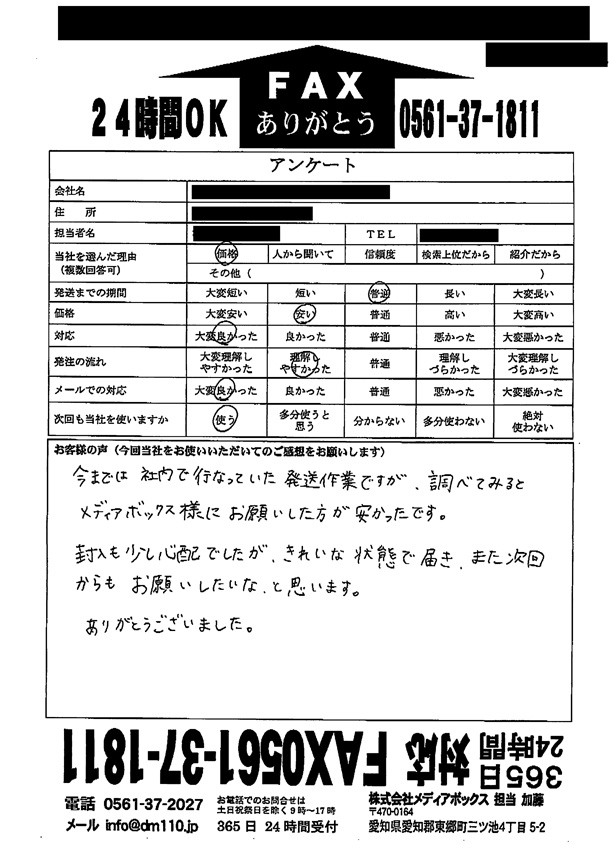 FAX
ありがとう
24時間OK
0561-37-1811
アンケート
会社名
住 所
担当者名 TEL
当社を選んだ理由(複数回答可) 価格 人から聞いて 信頼度 検索上位だから 紹介だから
その他( )
発送までの期間 大変短い 短い 普通 長い 大変長い
価格 大変安い 安い 普通 高い 大変高い
対応 大変良かった 良かった 普通 悪かった 大変悪かった
発注の流れ 大変理解しやすかった 理解しやすかった 普通 理解しづらかった 大変理解しづらかった
メールでの対応 大変良かった 良かった 普通 悪かった 大変悪かった
次回も当社を使いますか 使う 多分使うと思う 分からない 多分使わない 絶対使わない
お客様の声(今回当社をお使いいただいてのご感想をお願いします)
今までは 社内で行なっていた 発送作業ですが、調べてみると
メディアボックス様に お願いした方が 安かったです。
封入も少し心配でしたが、きれいな 状態で届き、また次回
からも お願いしたいな、と思います。
ありがとうございました。
365日24時間 対応 FAX0561-37-1811
電話 0561-37-2027
メール info@dm110.jp
お電話でのお問合せは
土日祝祭日を除く9時〜17時
365日 24時間受付
株式会社メディアボックス 担当 加藤
〒470-0164
愛知県愛知郡東郷町三ツ池4丁目5-2